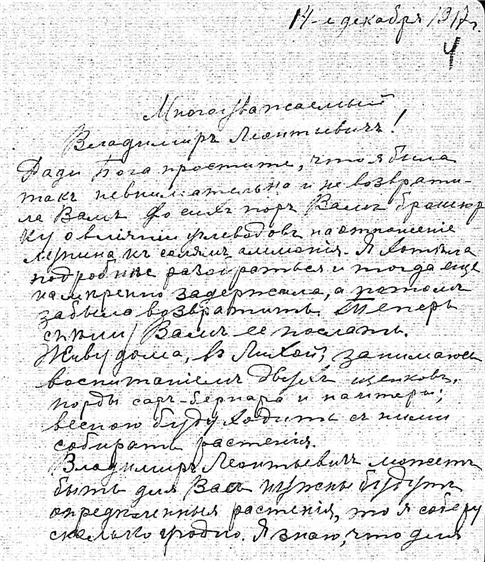 14-е декабря 1917 г.
4
Многоуважаемый
Владимиръ Леонтьевичъ!
Ради Бога простите, что я была
такъ невнимательна и не возврати-
ла Вамъ до сихъ поръ Вашъ брошюр-
ку о вліяніи углеводовъ на отношеніе
лупина къ солямъ аммонія. Я хотѣла
подробнѣе разобраться и тогда еще
намѣренно задержала, а потомъ
забыла возвратить. Теперь
спѣшу Вамъ ее послать.
Живу дома, въ Лихой, занимаюсь
воспитаніемъ двухъ щенковъ,
породы санъ-бернара и пантеры;
весною буду ходить съ ними
собирать растенія.
Владимиръ Леонтьевичъ можетъ
быть для Васъ нужны будутъ
опредѣленныя растенія, то я соберу
сколько угодно. Я знаю, что для